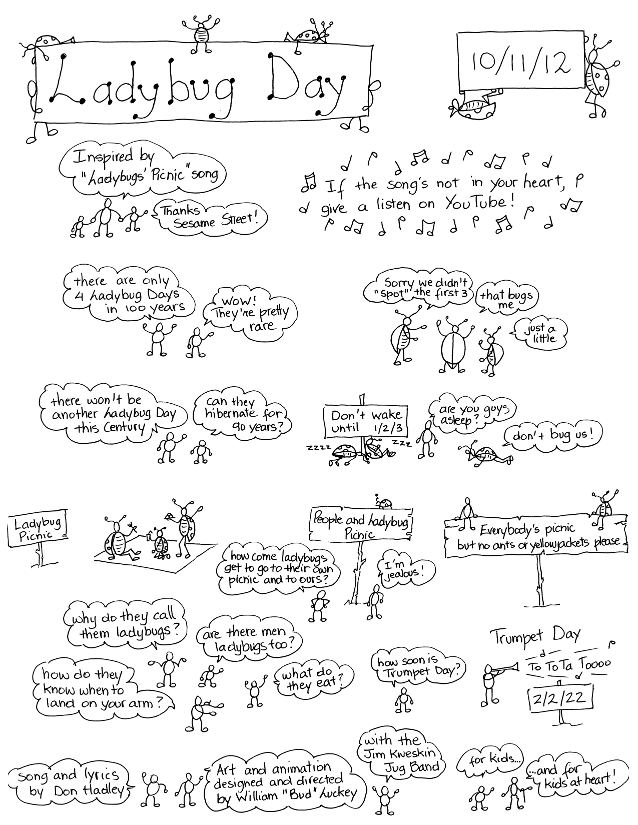 Ladybug Day
10/11/12
Inspired by
"Ladybugs' Picnic" song
Thanks
Sesame Street!
If the song's not in your heart,
give a listen on YouTube!
there are only
4 Ladybug Days
in 100 years
wow!
They're pretty
rare
Sorry we didn't
"spot" the first 3
that bugs
me
just a
little
there won't be
another Ladybug Day
this Century
can they
hibernate for
90 years?
Don't wake
until 1/2/3
zzzz
zzz
are you guys
asleep?
don't bug us!
Ladybug
Picnic
People and Ladybug
Picnic
how come ladybugs
get to go to their own
picnic and to ours?
I'm
jealous!
Everybody's picnic
but no ants or yellowjackets please
why do they call
them ladybugs?
are there men
ladybugs too?
how do they
know when to
land on your arm?
what do
they eat?
how soon is
Trumpet Day?
Trumpet Day
To To Ta Toooo
2/2/22
song and lyrics
by Don Hadley
Art and animation
designed and directed
by William "Bud" Luckey
with the
Jim Kweskin
Jug Band
for kids...
...and for
kids at heart!